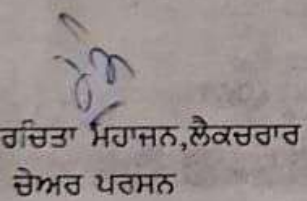 ਰਚਿਤਾ ਮਹਾਜਨ,ਲੈਕਚਰਾਰ
ਚੇਅਰ ਪਰਸਨ